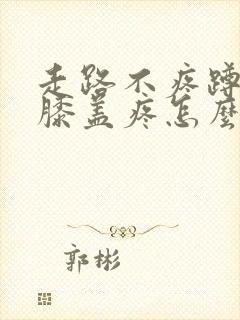 走路不疼蹲
膝盖疼怎麽
郭彬